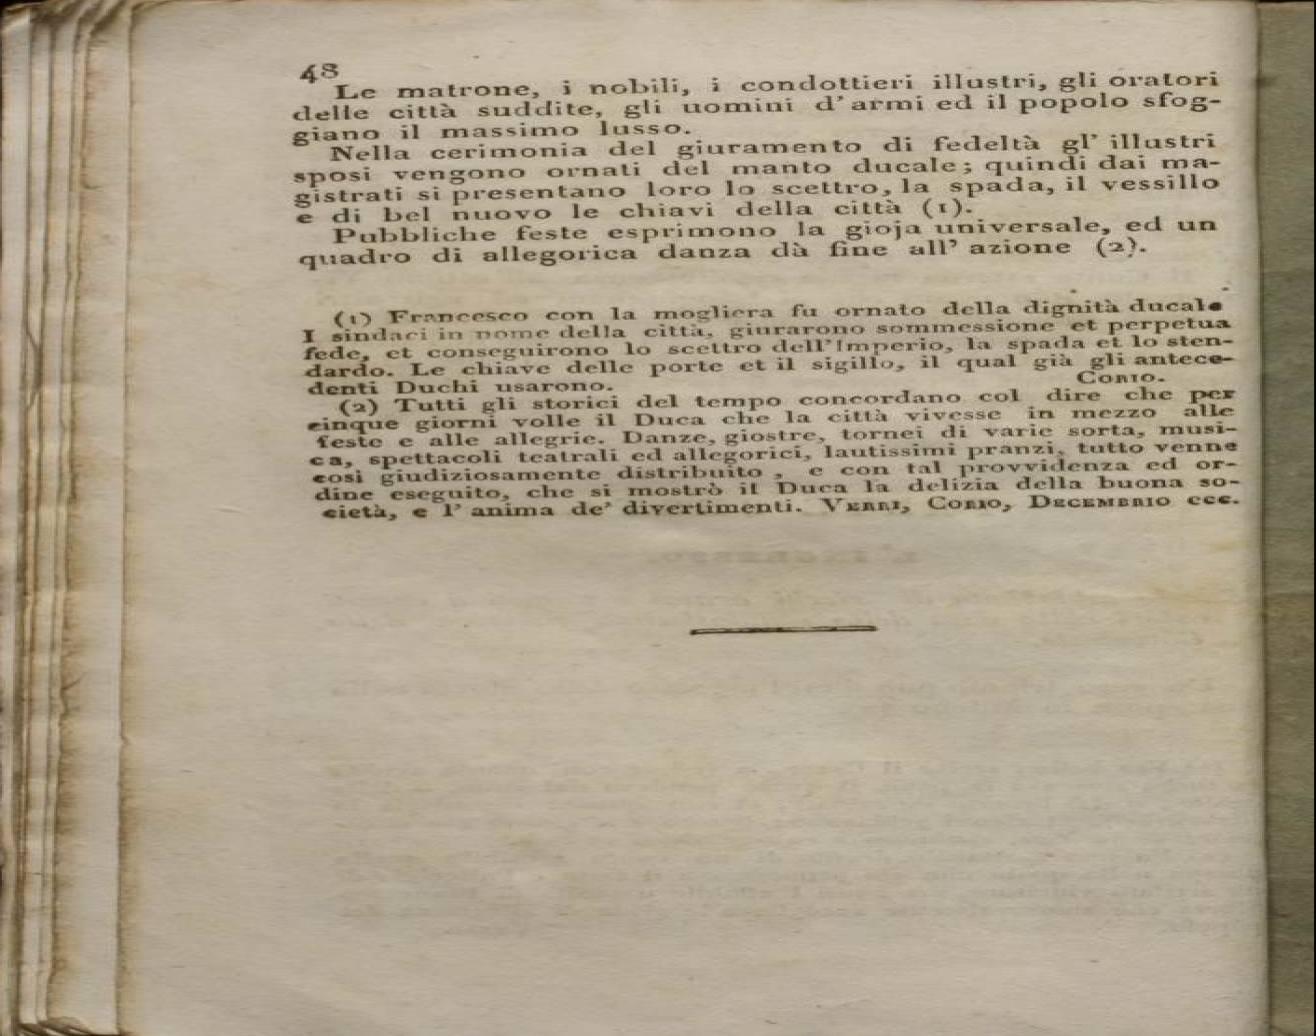 48
Le matrone, i nobili, i condottieri illustri, gli oratori
delle città suddite, gli uomini d' armi ed il popolo sfog-
giano il massimo lusso.
Nella cerimonia del giuramento di fedeltà gl' illustri
sposi vengono ornati del manto ducale; quindi dai ma-
gistrati si presentano loro lo scettro, la spada, il vessillo
e di bel nuovo le chiavi della città (1).
Pubbliche feste esprimono la gioja universale, ed un
quadro di allegorica danza dà fine all' azione (2).
(1) Francesco con la mogliera fu ornato della dignità ducale
I sindaci in nome della città, giurarono sommessione et perpetua
fede, et conseguirono lo scettro dell'Imperio, la spada et lo sten-
dardo. Le chiave delle porte et il sigillo, il qual già gli antece-
denti Duchi usarono. Corio.
(2) Tutti gli storici del tempo concordano col dire che per
cinque giorni volle il Duca che la città vivesse in mezzo alle
feste e alle allegrie. Danze, giostre, tornei di varie sorta, musi-
ca, spettacoli teatrali ed allegorici, lautissimi pranzi, tutto venne
così giudiziosamente distribuito, e con tal provvidenza ed or-
dine eseguito, che si mostrò il Duca la delizia della buona so-
cietà, e l' anima de' divertimenti. Verri, Corio, Decembrio ecc.